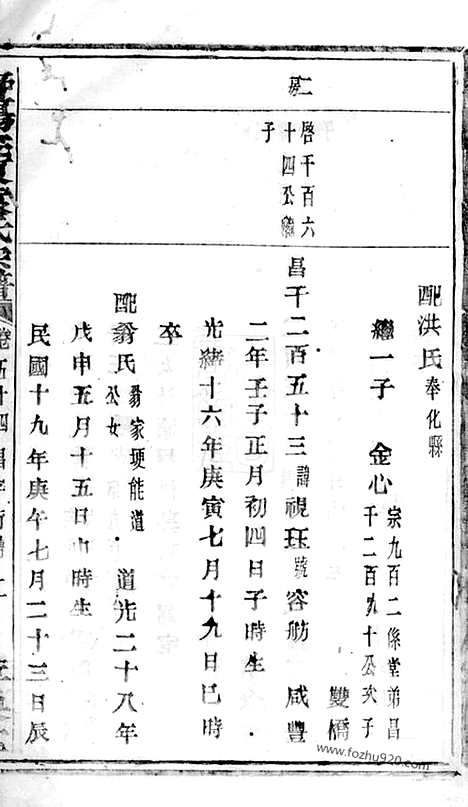 二房
啓千百六
十四公繼
子
配洪氏奉化縣
繼一子 金心宗九百二係堂弟昌
千二百九十公次子
雙橋
昌千二百五十三諱視珏號容舫 咸豐
二年壬子正月初四日子時生
光緒十六年庚寅七月十九日巳時
卒
配翁氏翁家埂能道
公女 道光二十八年
戊申五月十五日丑時生
民國十九年庚午七月二十三日辰
氏宗譜
卷五十四
www.fozhu920.com